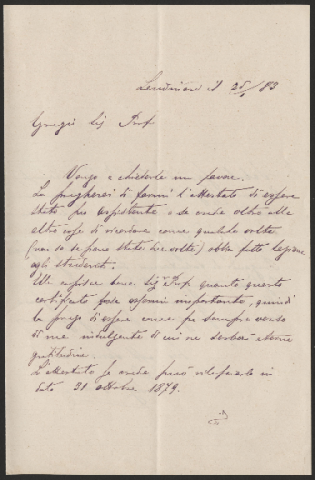 Lendinara il 25/ /83
Gregio Sig Prof
Vengo a chiederle un favore.
La pregherei di farmi l'attestato di essere
stato suo assistente e se crede oltre alle
altre cose di ricordare come qualche volta
(non so se sieno state tre volte) abbia fatto lezione
agli studenti.
Ella capisce bene Sigr Prof quanto questo
certificato possa essermi importante, quindi
la prego d'essere come fu sempre verso
di me indulgente di cui ne serberò eterna
gratitudine.
L'attestato se crede può rilasciarlo in
data 31 ottobre 1879.